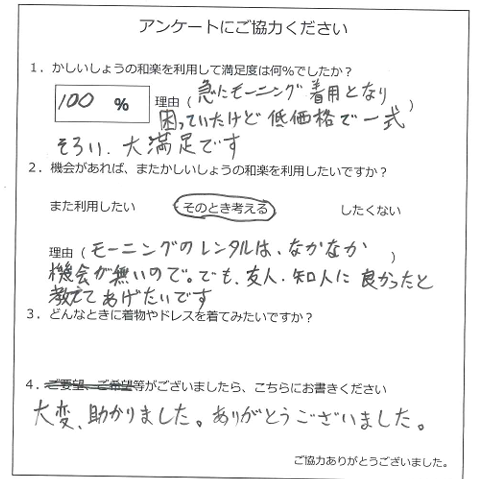 アンケートにご協力ください
1．かしいしょうの和楽を利用して満足度は何%でしたか？
100 % 理由（急にモーニング着用となり）
困っていたけど低価格で一式
そろい、大満足です
2．機会があれば、またかしいしょうの和楽を利用したいですか？
また利用したい そのとき考える したくない
理由（モーニングのレンタルは、なかなか）
機会が無いので。でも、友人・知人に良かったと
教えてあげたいです
3．どんなときに着物やドレスを着てみたいですか？
4．ご要望、ご希望等がございましたら、こちらにお書きください
大変、助かりました。ありがとうございました。
ご協力ありがとうございました。